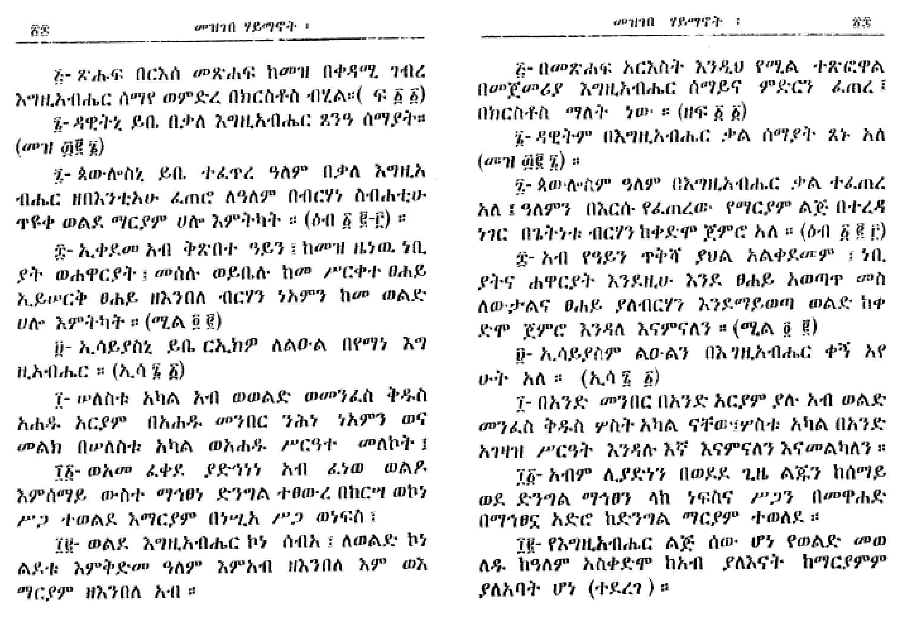 መዝገበ ሃይማኖት ፡
፭- ጽሑፍ በርእሰ መጽሐፍ ከመዝ በቀዳሚ ገብረ
እግዚአብሔር ሰማየ ወምድረ በክርስቶስ ብሂል።( ፍ ፩ ፩)
፮- ዳዊትኒ ይቤ በቃለ እግዚአብሔር ጸንዓ ሰማያት።
(መዝ ፴፪ ፮)
፯- ጳውሎስኒ ይቤ ተፈጥረ ዓለም በቃለ እግዚአ
ብሔር ዘበእንቲአሁ ፈጠሮ ለዓለም በብርሃነ ስብሐቲሁ
ጥዩቀ ወልደ ማርያም ሀሎ እምትካት ። (ዕብ ፩ ፪-፫) ።
፰- ኢቀደመ አብ ቅጽበተ ዓይን ፤ ከመዝ ዜነዉ ነቢ
ያት ወሐዋርያት ፤ መሰሉ ወይቤሉ ከመ ሥርቀተ ፀሐይ
ኢይሠርቅ ፀሐይ ዘእንበለ ብርሃን ነአምን ከመ ወልድ
ሀሎ እምትካት ። (ሚል ፬ ፪)
፱- ኢሳይያስኒ ይቤ ርኢክዎ ለልዑል በየማነ እግ
ዚአብሔር ። (ኢሳ ፮ ፩)
፲- ሠለስቱ አካል አብ ወወልድ ወመንፈስ ቅዱስ
አሐዱ አርያም በአሐዱ መንበር ንሕነ ነአምን ወና
መልክ በሠለስቱ አካል ወአሐዱ ሥርዓተ መለኮት ፤
፲፩- ወአመ ፈቀደ ያድኅነነ አብ ፈነወ ወልዶ
እምሰማይ ውስተ ማኅፀነ ድንግል ተፀውረ በከርሣ ወኮነ
ሥጋ ተወልደ እማርያም በነሢአ ሥጋ ወነፍስ ፤
፲፪- ወልደ እግዚአብሔር ኮነ ሰብአ ፤ ለወልድ ኮነ
ልደቱ እምቅድመ ዓለም እምአብ ዘእንበለ እም ወእ
ማርያም ዘእንበለ አብ ።
መዝገበ ሃይማኖት ፡
፭- በመጽሐፍ አርእስት እንዲህ የሚል ተጽፎዋል
በመጀመሪያ እግዚአብሔር ሰማይና ምድርን ፈጠረ ፤
በክርስቶስ ማለት ነው ። (ዘፍ ፩ ፩)
፮- ዳዊትም በእግዚአብሔር ቃል ሰማያት ጸኑ አለ
(መዝ ፴፪ ፮) ።
፯- ጳውሎስም ዓለም በእግዚአብሔር ቃል ተፈጠረ
አለ ፤ ዓለምን በእርሱ የፈጠረው የማርያም ልጅ በተረዳ
ነገር በጌትነቱ ብርሃን ከቀድሞ ጀምሮ አለ ። (ዕብ ፩ ፪ ፫)
፰- አብ የዓይን ጥቅሻ ያህል አልቀደመም ፤ ነቢ
ያትና ሐዋርያት እንደዚሁ እንደ ፀሐይ አወጣጥ መስ
ለውታልና ፀሐይ ያለብርሃን እንደማይወጣ ወልድ ከቀ
ድሞ ጀምሮ እንዳለ እናምናለን ። (ሚል ፬ ፪)
፱- ኢሳይያስም ልዑልን በእግዚአብሔር ቀኝ አየ
ሁት አለ ። (ኢሳ ፮ ፩)
፲- በአንድ መንበር በአንድ አርያም ያሉ አብ ወልድ
መንፈስ ቅዱስ ሦስት አካል ናቸው፤ሦስቱ አካል በአንድ
አገዛዝ ሥርዓት እንዳሉ እኛ እናምናለን እናመልካለን ።
፲፩- አብም ሊያድነን በወደደ ጊዜ ልጁን ከሰማይ
ወደ ድንግል ማኅፀን ላከ ነፍስና ሥጋን በመዋሐድ
በማኅፀኗ አድሮ ከድንግል ማርያም ተወለደ ።
፲፪- የእግዚአብሔር ልጅ ሰው ሆነ የወልድ መወ
ለዱ ከዓለም አስቀድሞ ከአብ ያለእናት ከማርያምም
ያለአባት ሆነ (ተደረገ ) ።